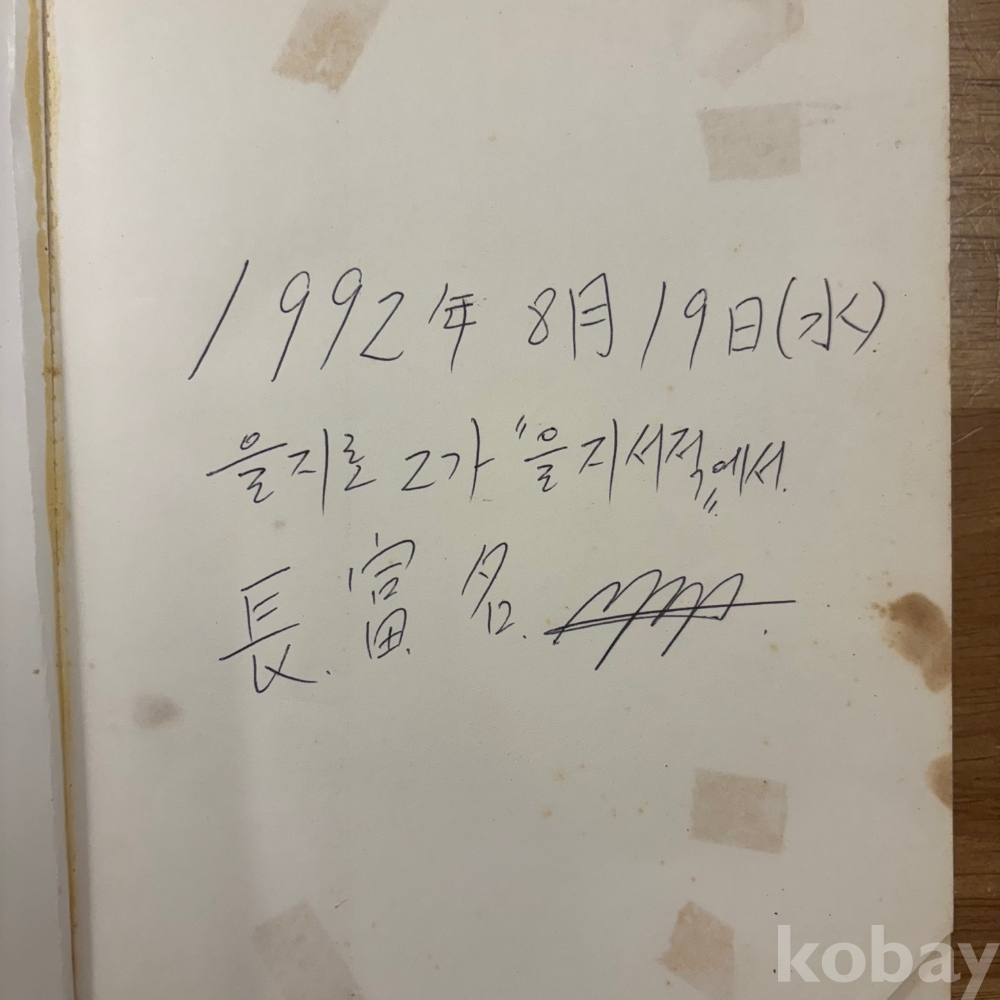 1992年 8月 19日(水).
을지로 2가 "을지서적"에서.
長. 富. 名.
kobay